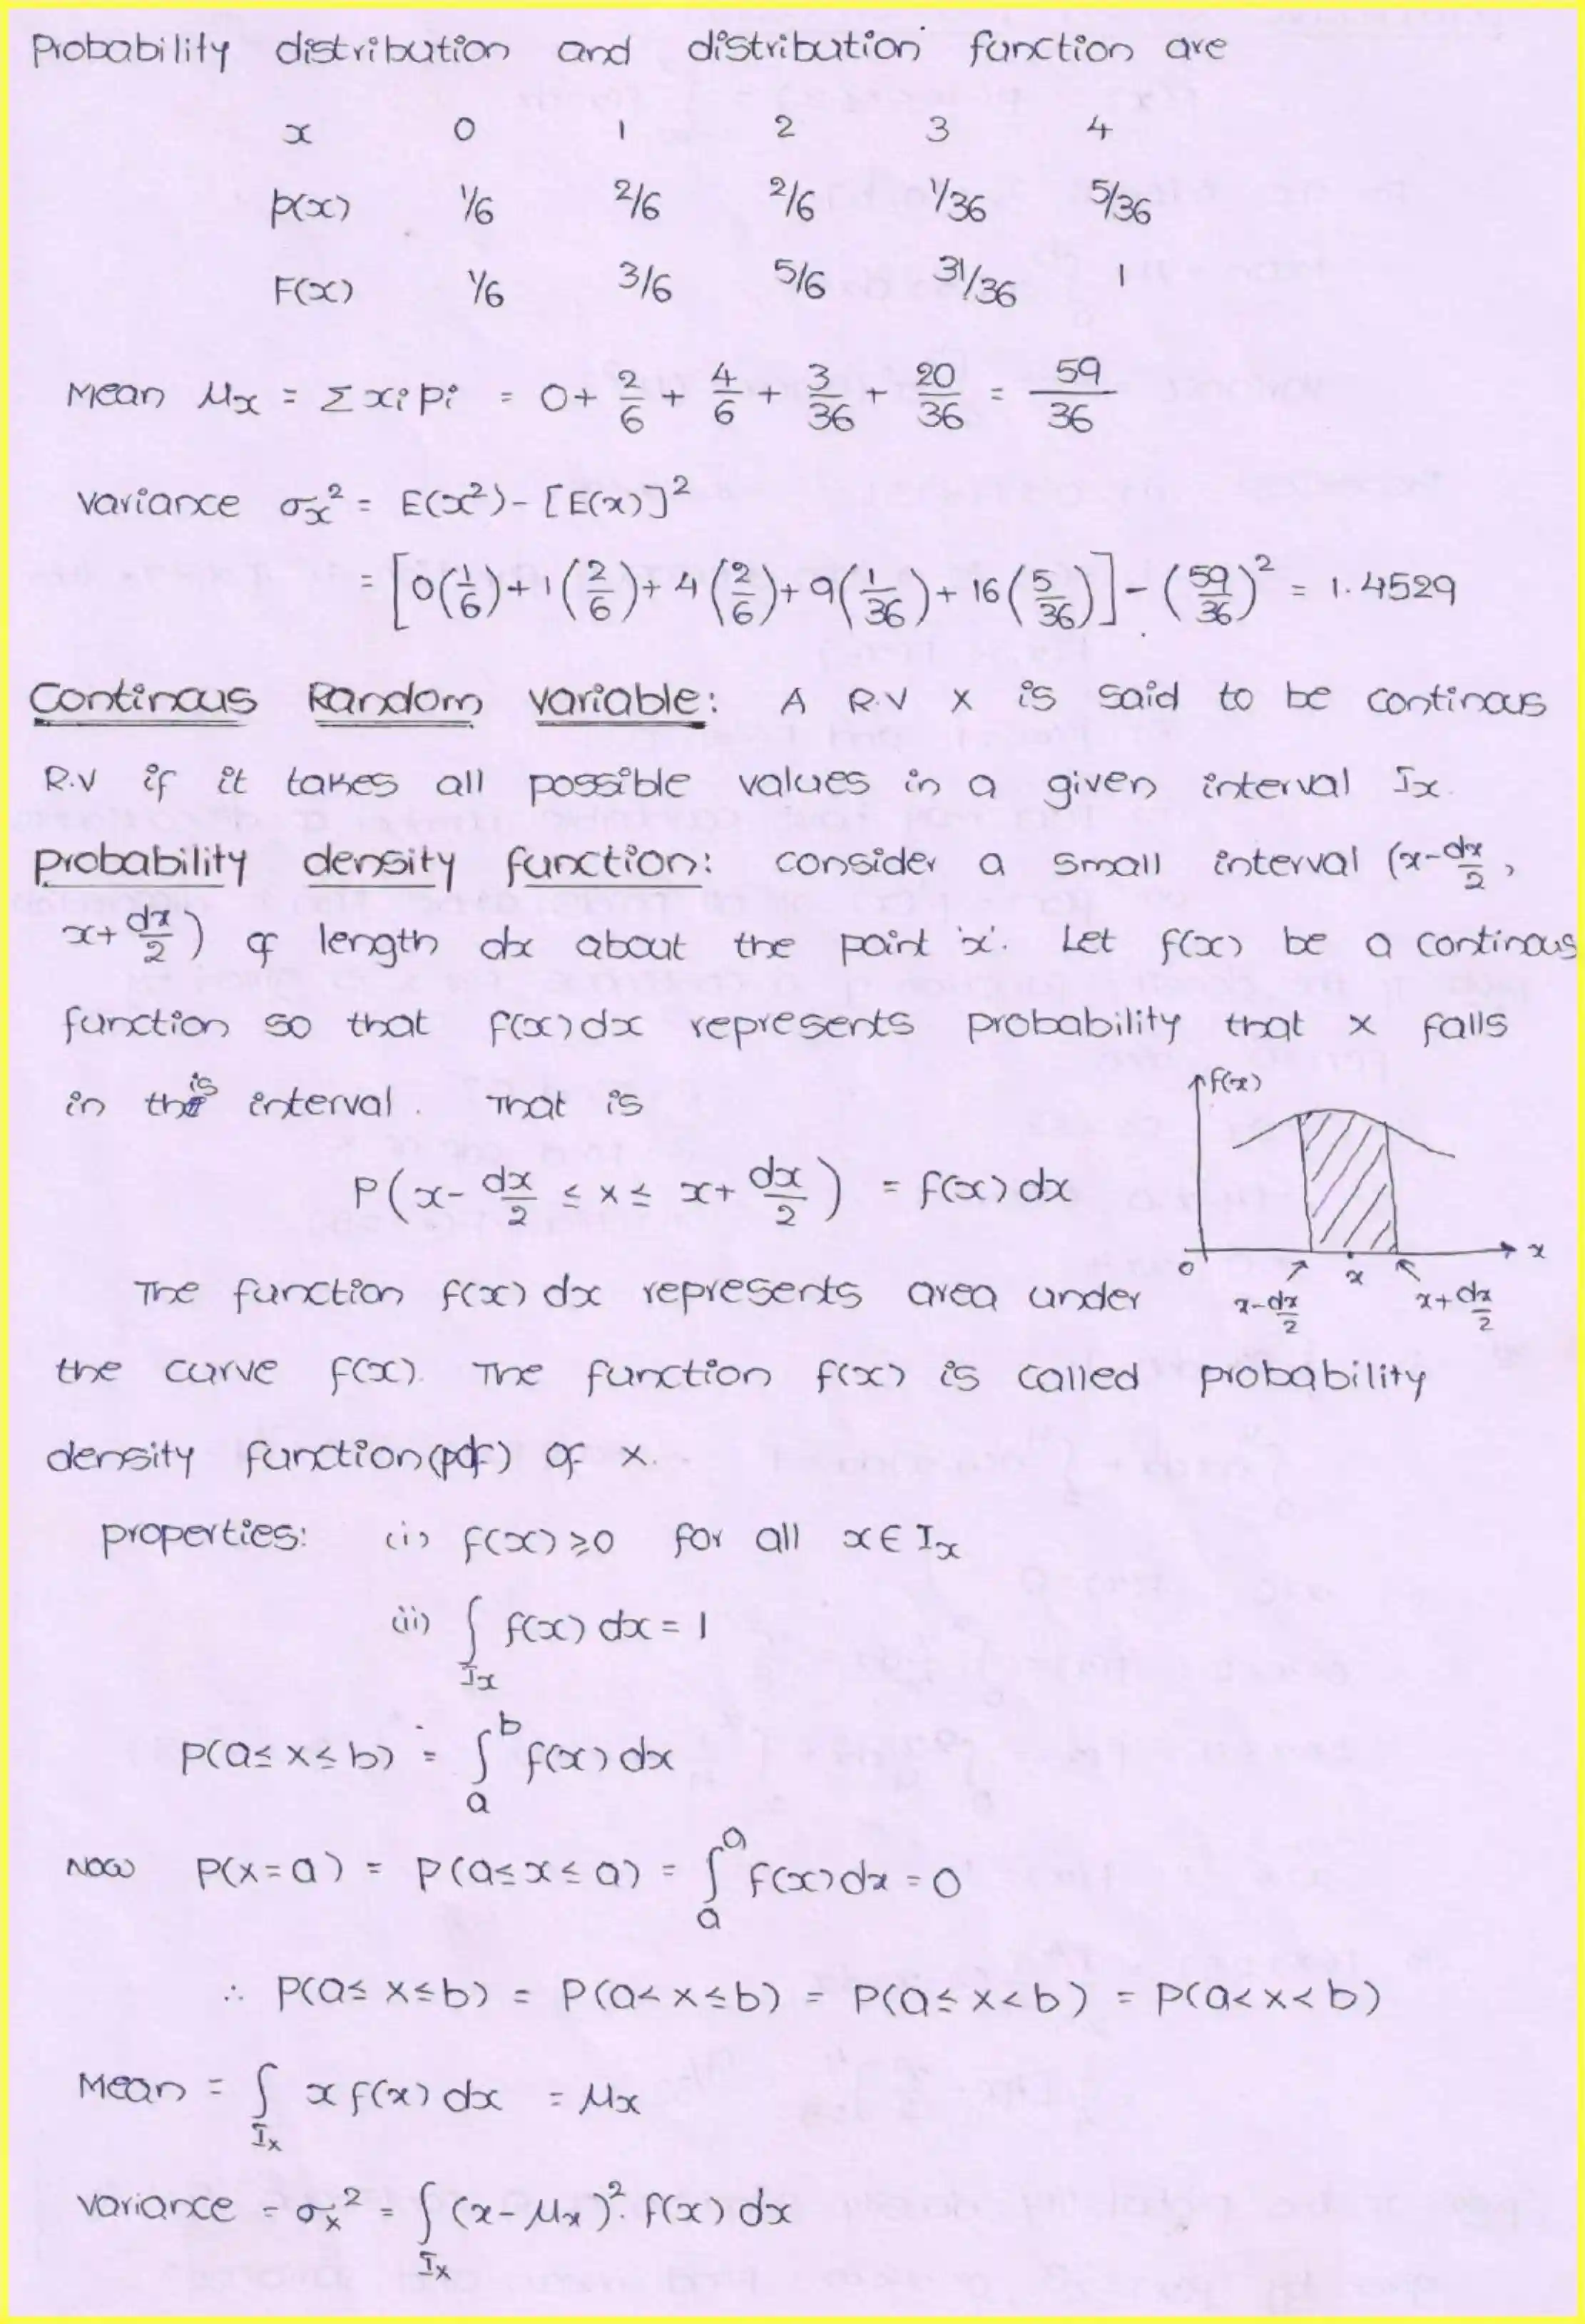 Probability distribution and distribution function are
x 0 1 2 3 4
p(x) 1/6 2/6 2/6 1/36 5/36
F(x) 1/6 3/6 5/6 31/36 1
Mean μx = Σ xi pi = 0 + 2/6 + 4/6 + 3/36 + 20/36 = 59/36
variance σx² = E(x²) - [E(x)]²
= [0(1/6) + 1(2/6) + 4(2/6) + 9(1/36) + 16(5/36)] - (59/36)² = 1.4529
Continous Random variable: A R.V X is said to be continous
R.V if it takes all possible values in a given interval Ix.
probability density function: consider a small interval (x-dx/2,
x+dx/2) of length dx about the point 'x'. Let f(x) be a continous
function so that f(x)dx represents probability that X falls
in this interval. That is
P(x - dx/2 ≤ X ≤ x + dx/2) = f(x) dx
f(x)
0 x x
x-dx/2 x+dx/2
The function f(x) dx represents area under
the curve f(x). The function f(x) is called probability
density function(pdf) of X.
properties: (i) f(x) ≥ 0 for all x ∈ Ix
(ii) ∫Ix f(x) dx = 1
P(a ≤ X ≤ b) = ∫ₐᵇ f(x) dx
Now P(X=a) = P(a≤x≤a) = ∫ₐᵃ f(x)dx = 0
∴ P(a≤ X≤b) = P(a< X≤b) = P(a≤ X<b) = P(a<X<b)
Mean = ∫Ix x f(x) dx = μx
variance = σx² = ∫Ix (x-μx)². f(x) dx